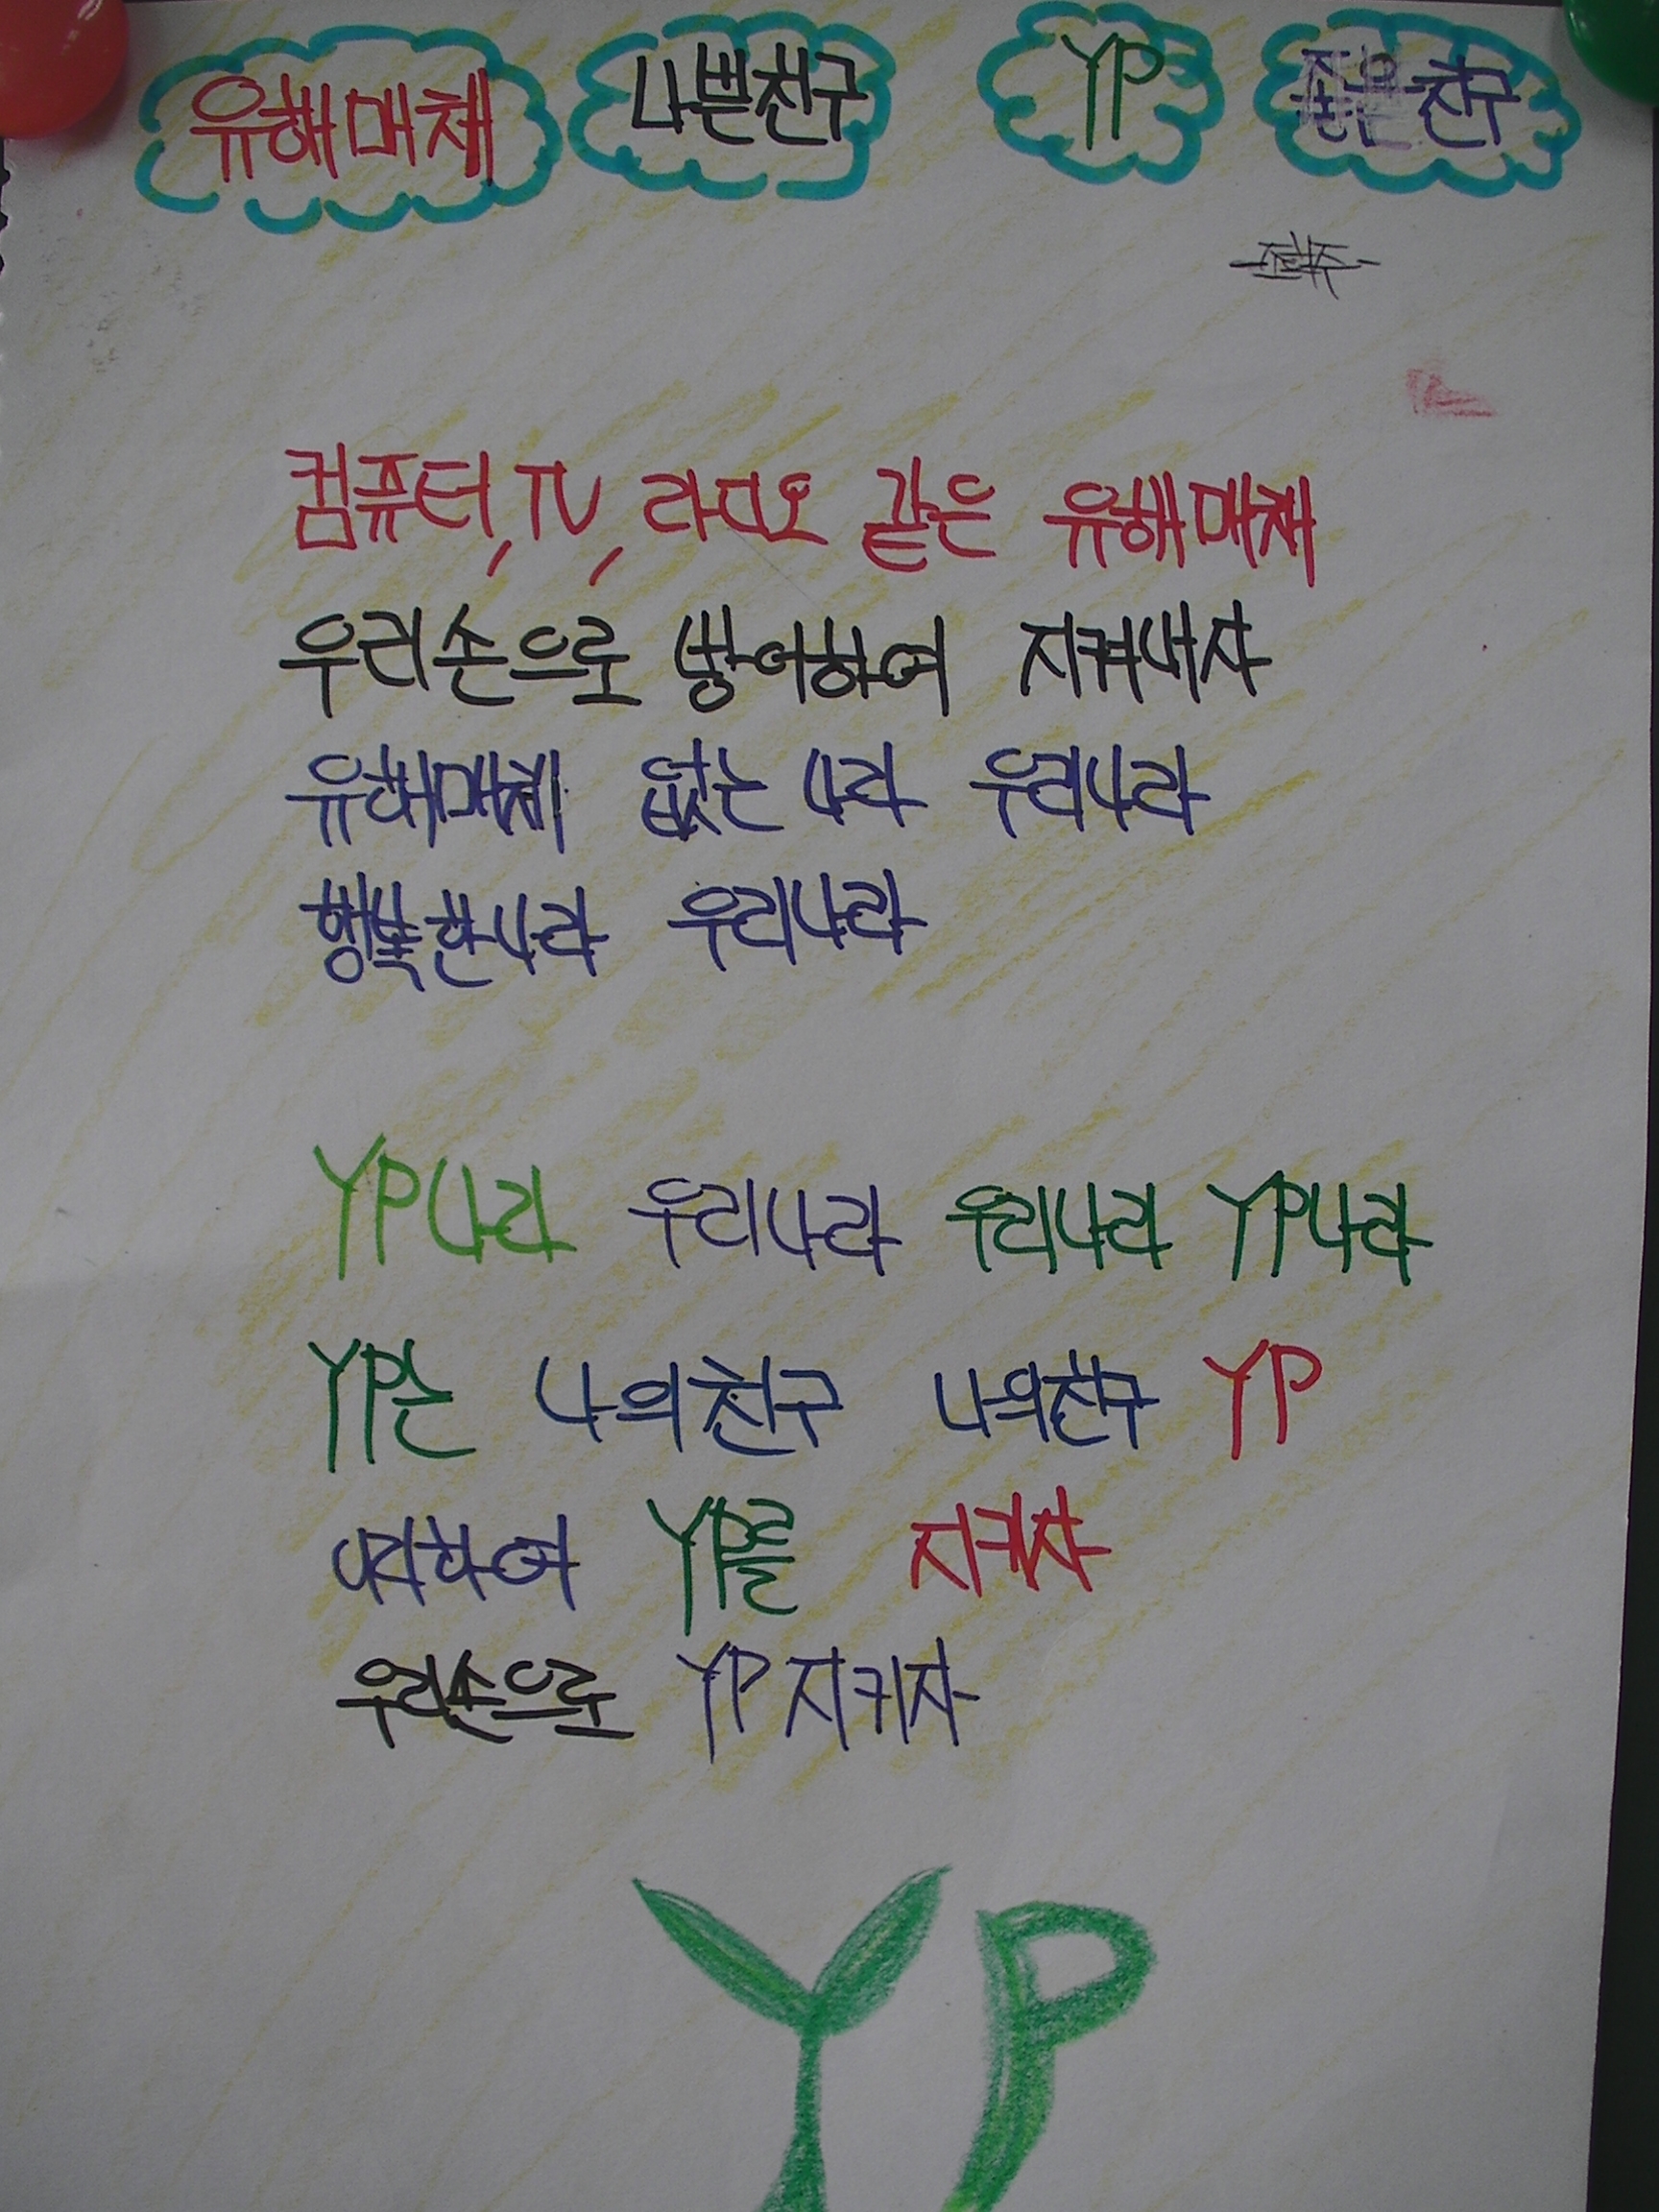 유해매체 나쁜친구 YP 좋은친구
컴퓨터, TV, 라디오 같은 유해매체
우리손으로 방어하여 지켜내자
유해매체 없는 나라 우리나라
행복한나라 우리나라
YP나라 우리나라 우리나라 YP나라
YP는 나의친구 나의친구 YP
YP를 지키자
우리손으로 YP 지키자
YP